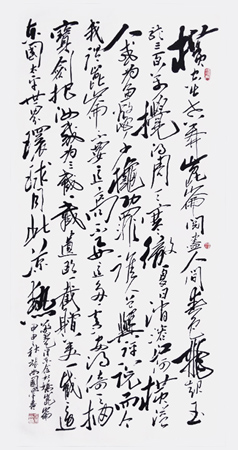 横空出世莽崑崙閲盡人间春色飛起玉
龙三百万搅得周天寒彻夏日消溶江河横溢
人或为鱼鳖千秋功罪谁人曾与评说而今
我谓崑崙不要这高不要这多雪安得倚天抽
宝剑把汝裁为三截一截遗欧一截赠美一截还
东国太平世界环球同此凉热
甲申秋